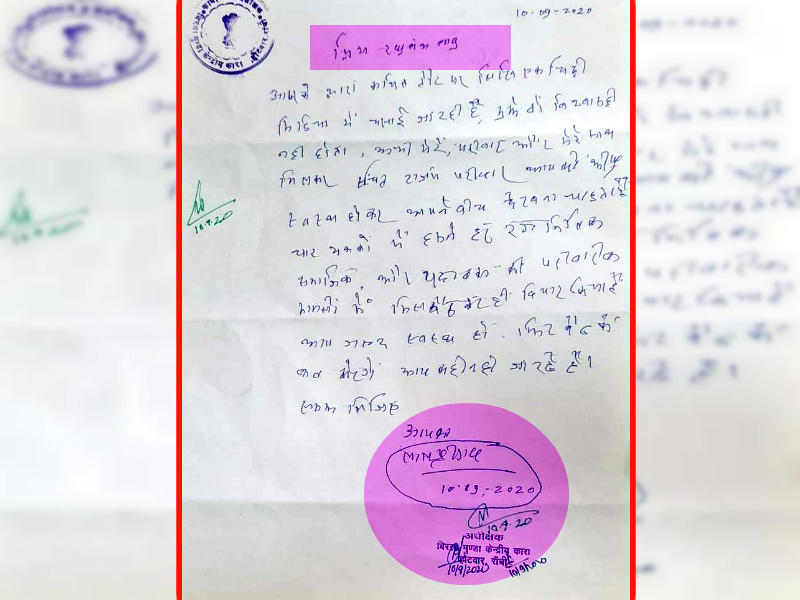 10-09-2020
प्रिय रघुवंश बाबू
आपके द्वारा कथित तौर पर लिखि एक चिट्ठी
मिडिया में चलाई जा रही है, मुझे तो विश्वास ही
नहीं होता, अभी मेरे, परिवार और मेरे साथ
मिलकर सिंचित राजद परिवार आपको शीघ्र
स्वस्थ होकर अपने बीच देखना चाहते हैं
चार दशकों में हमने हर राजनितिक
समाजिक, और यहां तक की परिवारीक
मामलों में मिल बैठकर ही विचार किया है
आप जल्द स्वस्थ हों. फिर बैठ के
बात करेंगे आप कहीं नहीं जा रहे हैं।
समझ लिजिए
10.9.20
आपका
लालू प्रसाद
10.09.-2020
10.9.20
अधीक्षक
बिरसा मुण्डा केन्द्रीय कारा
होटवार, राँची
10/9/2020
10/9/2020